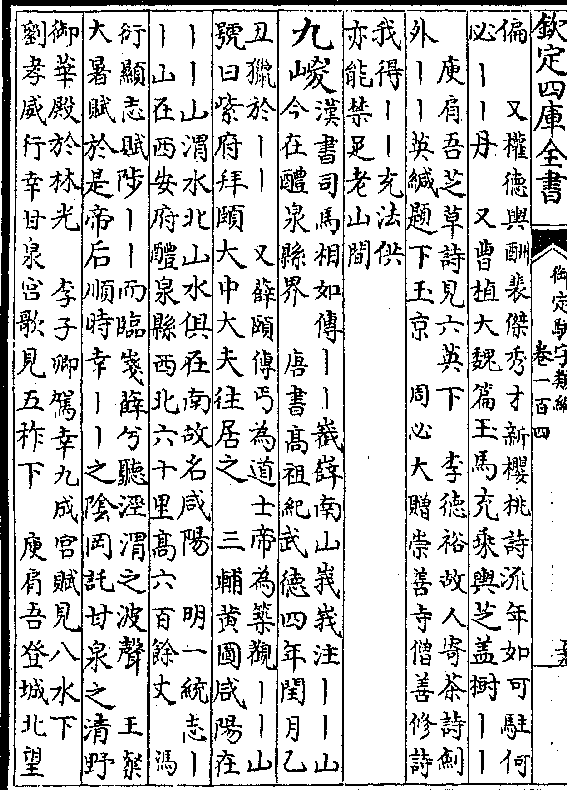 欽定四庫全書
御定駢字類編
卷一百四
偏　又權德輿酬裴傑秀才新櫻桃詩流年如可駐何
必丨丨丹　又曹植大魏篇玉馬充乘輿芝蓋樹丨丨
庾肩吾芝草詩見六英下　李德裕故人寄茶詩劍
外丨丨英緘題下玉京　周必大贈崇善寺僧善修詩
我得丨丨充法供
亦能禁足老山間
九嵕漢書司馬相如傳丨丨嶻嶭南山峩峩注丨丨山
今在醴泉縣界　唐書髙祖紀武德四年閏月乙
丑獵於丨丨　又薛頤傳丐為道士帝為築觀丨丨山
號曰紫府拜頤大中大夫往居之　三輔黄圖咸陽在
丨丨山渭水北山水俱在南故名咸陽　明一統志丨
丨山在西安府醴泉縣西北六十里髙六百餘丈　馮
衍顯志賦陟丨丨而臨嶻嶭兮聽涇渭之波聲　王粲
大暑賦於是帝后順時幸丨丨之陰岡託甘泉之清野
御華殿於林光　李子卿駕幸九成宫賦見八水下
劉孝威行幸甘泉宫歌見五柞下　庾肩吾登城北望